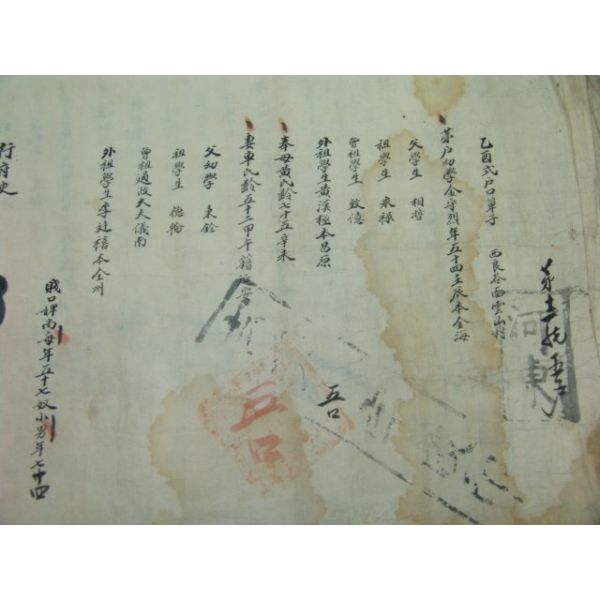 乙酉式戶口單子 西良谷面雲山村
第 戶幼學金守烈年五十四壬辰本金海
父學生 相哲
祖學生 來祿
曾祖學生 致億
外祖學生黃漢極本昌原
奉母黃氏齡七十五辛未
妻車氏齡五十二甲午籍延安
父幼學 東銓
祖學生 德翰
曾祖通政大夫儀南
外祖學生李廷禧本全州
賤口婢尚每年五十七奴小男年七十四
河東
五口
五口
行府使